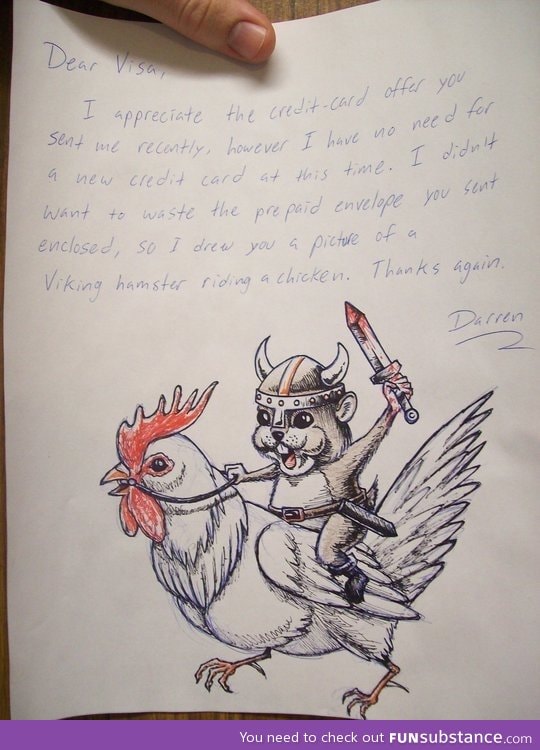 Dear Visa,
I appreciate the credit-card offer you
sent me recently, however I have no need for
a new credit card at this time. I didn't
want to waste the prepaid envelope you sent
enclosed, so I drew you a picture of a
Viking hamster riding a chicken. Thanks again.
Darren
You need to check out FUNsubstance.com